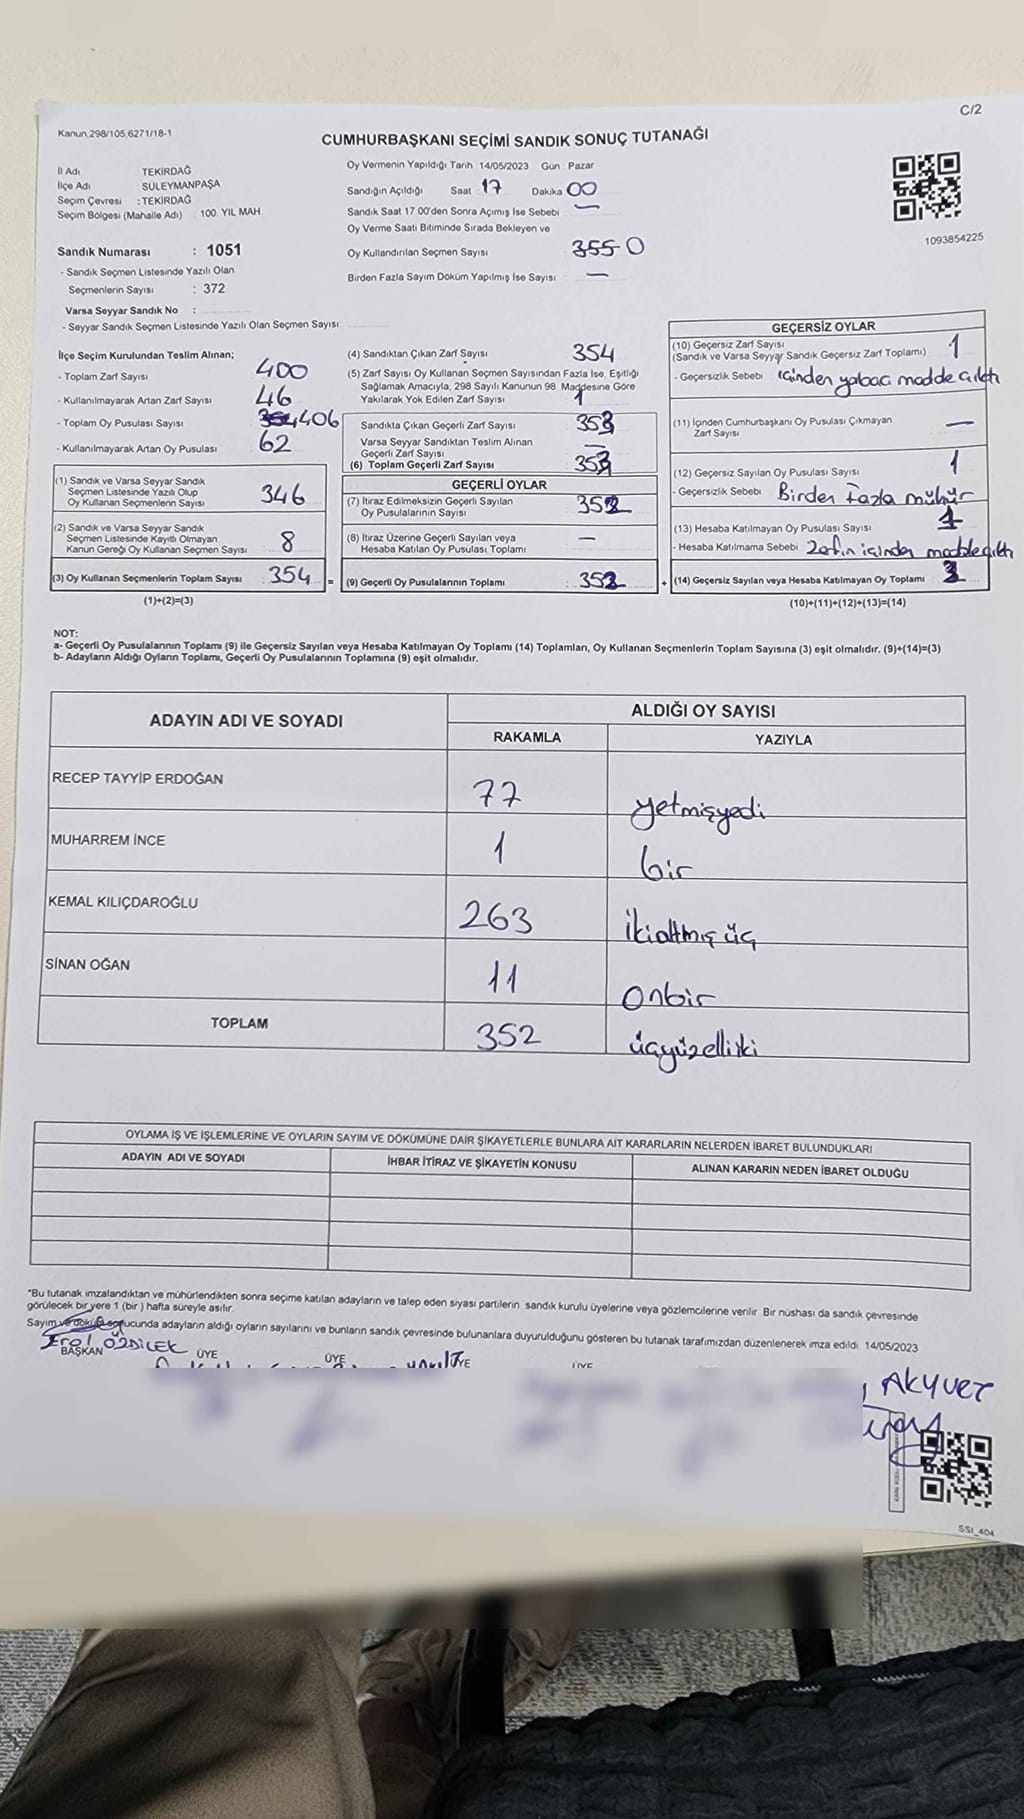 C/2
Kanun,298/105,6271/18-1
CUMHURBAŞKANI SEÇİMİ SANDIK SONUÇ TUTANAĞI
İl Adı TEKİRDAĞ
İlçe Adı SÜLEYMANPAŞA
Seçim Çevresi : TEKİRDAĞ
Seçim Bölgesi (Mahalle Adı) : 100. YIL MAH.
Sandık Numarası : 1051
- Sandık Seçmen Listesinde Yazılı Olan
Seçmenlerin Sayısı : 372
Varsa Seyyar Sandık No :
- Seyyar Sandık Seçmen Listesinde Yazılı Olan Seçmen Sayısı
Oy Vermenin Yapıldığı Tarih 14/05/2023 Gün Pazar
Sandığın Açıldığı Saat 17 Dakika 00
Sandık Saat 17 00'den Sonra Açımış İse Sebebi —
Oy Verme Saati Bitiminde Sırada Bekleyen ve
Oy Kullandırılan Seçmen Sayısı 355 0
Birden Fazla Sayım Döküm Yapılmış İse Sayısı —
1093854225
İlçe Seçim Kurulundan Teslim Alınan;
- Toplam Zarf Sayısı 400
- Kullanılmayarak Artan Zarf Sayısı 46
- Toplam Oy Pusulası Sayısı 406
- Kullanılmayarak Artan Oy Pusulası 62
(1) Sandık ve Varsa Seyyar Sandık
Seçmen Listesinde Yazılı Olup
Oy Kullanan Seçmenlerin Sayısı 346
(2) Sandık ve Varsa Seyyar Sandık
Seçmen Listesinde Kayıtlı Olmayan
Kanun Gereği Oy Kullanan Seçmen Sayısı 8
(3) Oy Kullanan Seçmenlerin Toplam Sayısı : 354 =
(1)+(2)=(3)
(4) Sandıktan Çıkan Zarf Sayısı 354
(5) Zarf Sayısı Oy Kullanan Seçmen Sayısından Fazla İse, Eşitliği
Sağlamak Amacıyla, 298 Sayılı Kanunun 98. Maddesine Göre
Yakılarak Yok Edilen Zarf Sayısı
Sandıkta Çıkan Geçerli Zarf Sayısı 353
Varsa Seyyar Sandıktan Teslim Alınan
Geçerli Zarf Sayısı —
(6) Toplam Geçerli Zarf Sayısı 353
GEÇERLİ OYLAR
(7) İtiraz Edilmeksizin Geçerli Sayılan
Oy Pusulalarının Sayısı : 352
(8) İtiraz Üzerine Geçerli Sayılan veya
Hesaba Katılan Oy Pusulası Toplamı —
(9) Geçerli Oy Pusulalarının Toplamı : 352 +
GEÇERSİZ OYLAR
(10) Geçersiz Zarf Sayısı
(Sandık ve Varsa Seyyar Sandık Geçersiz Zarf Toplamı) 1
- Geçersizlik Sebebi içinden yabacı madde çıktı
(11) İçinden Cumhurbaşkanı Oy Pusulası Çıkmayan
Zarf Sayısı —
(12) Geçersiz Sayılan Oy Pusulası Sayısı 1
- Geçersizlik Sebebi Birden Fazla mühür
(13) Hesaba Katılmayan Oy Pusulası Sayısı
- Hesaba Katılmama Sebebi Zarfın içinden madde çıktı
(14) Geçersiz Sayılan veya Hesaba Katılmayan Oy Toplamı :
(10)+(11)+(12)+(13)=(14)
NOT:
a- Geçerli Oy Pusulalarının Toplamı (9) ile Geçersiz Sayılan veya Hesaba Katılmayan Oy Toplamı (14) Toplamları, Oy Kullanan Seçmenlerin Toplam Sayısına (3) eşit olmalıdır. (9)+(14)=(3)
b- Adayların Aldığı Oyların Toplamı, Geçerli Oy Pusulalarının Toplamına (9) eşit olmalıdır.
ADAYIN ADI VE SOYADI ALDIĞI OY SAYISI
RAKAMLA YAZIYLA
RECEP TAYYİP ERDOĞAN 77 yetmişyedi
MUHARREM İNCE 1 bir
KEMAL KILIÇDAROĞLU 263 ikialtmış üç
SİNAN OĞAN 11 onbir
TOPLAM 352 üçyüzelliiki
OYLAMA İŞ VE İŞLEMLERİNE VE OYLARIN SAYIM VE DÖKÜMÜNE DAİR ŞİKAYETLERLE BUNLARA AİT KARARLARIN NELERDEN İBARET BULUNDUKLARI
ADAYIN ADI VE SOYADI İHBAR İTİRAZ VE ŞİKAYETİN KONUSU ALINAN KARARIN NEDEN İBARET OLDUĞU
*Bu tutanak imzalandıktan ve mühürlendikten sonra seçime katılan adayların ve talep eden siyası partilerin sandık kurulu üyelerine veya gözlemcilerine verilir Bir nüshası da sandık çevresinde
görülecek bir yere 1 (bir ) hafta süreyle asılır.
Sayım ve döküm sonucunda adayların aldığı oyların sayılarını ve bunların sandık çevresinde bulunanlara duyurulduğunu gösteren bu tutanak tarafımızdan düzenlenerek imza edildi 14/05/2023
Erol ÖZDİLEK
BAŞKAN ÜYE ÜYE ÜYE ÜYE
AKYVET
SSI_404